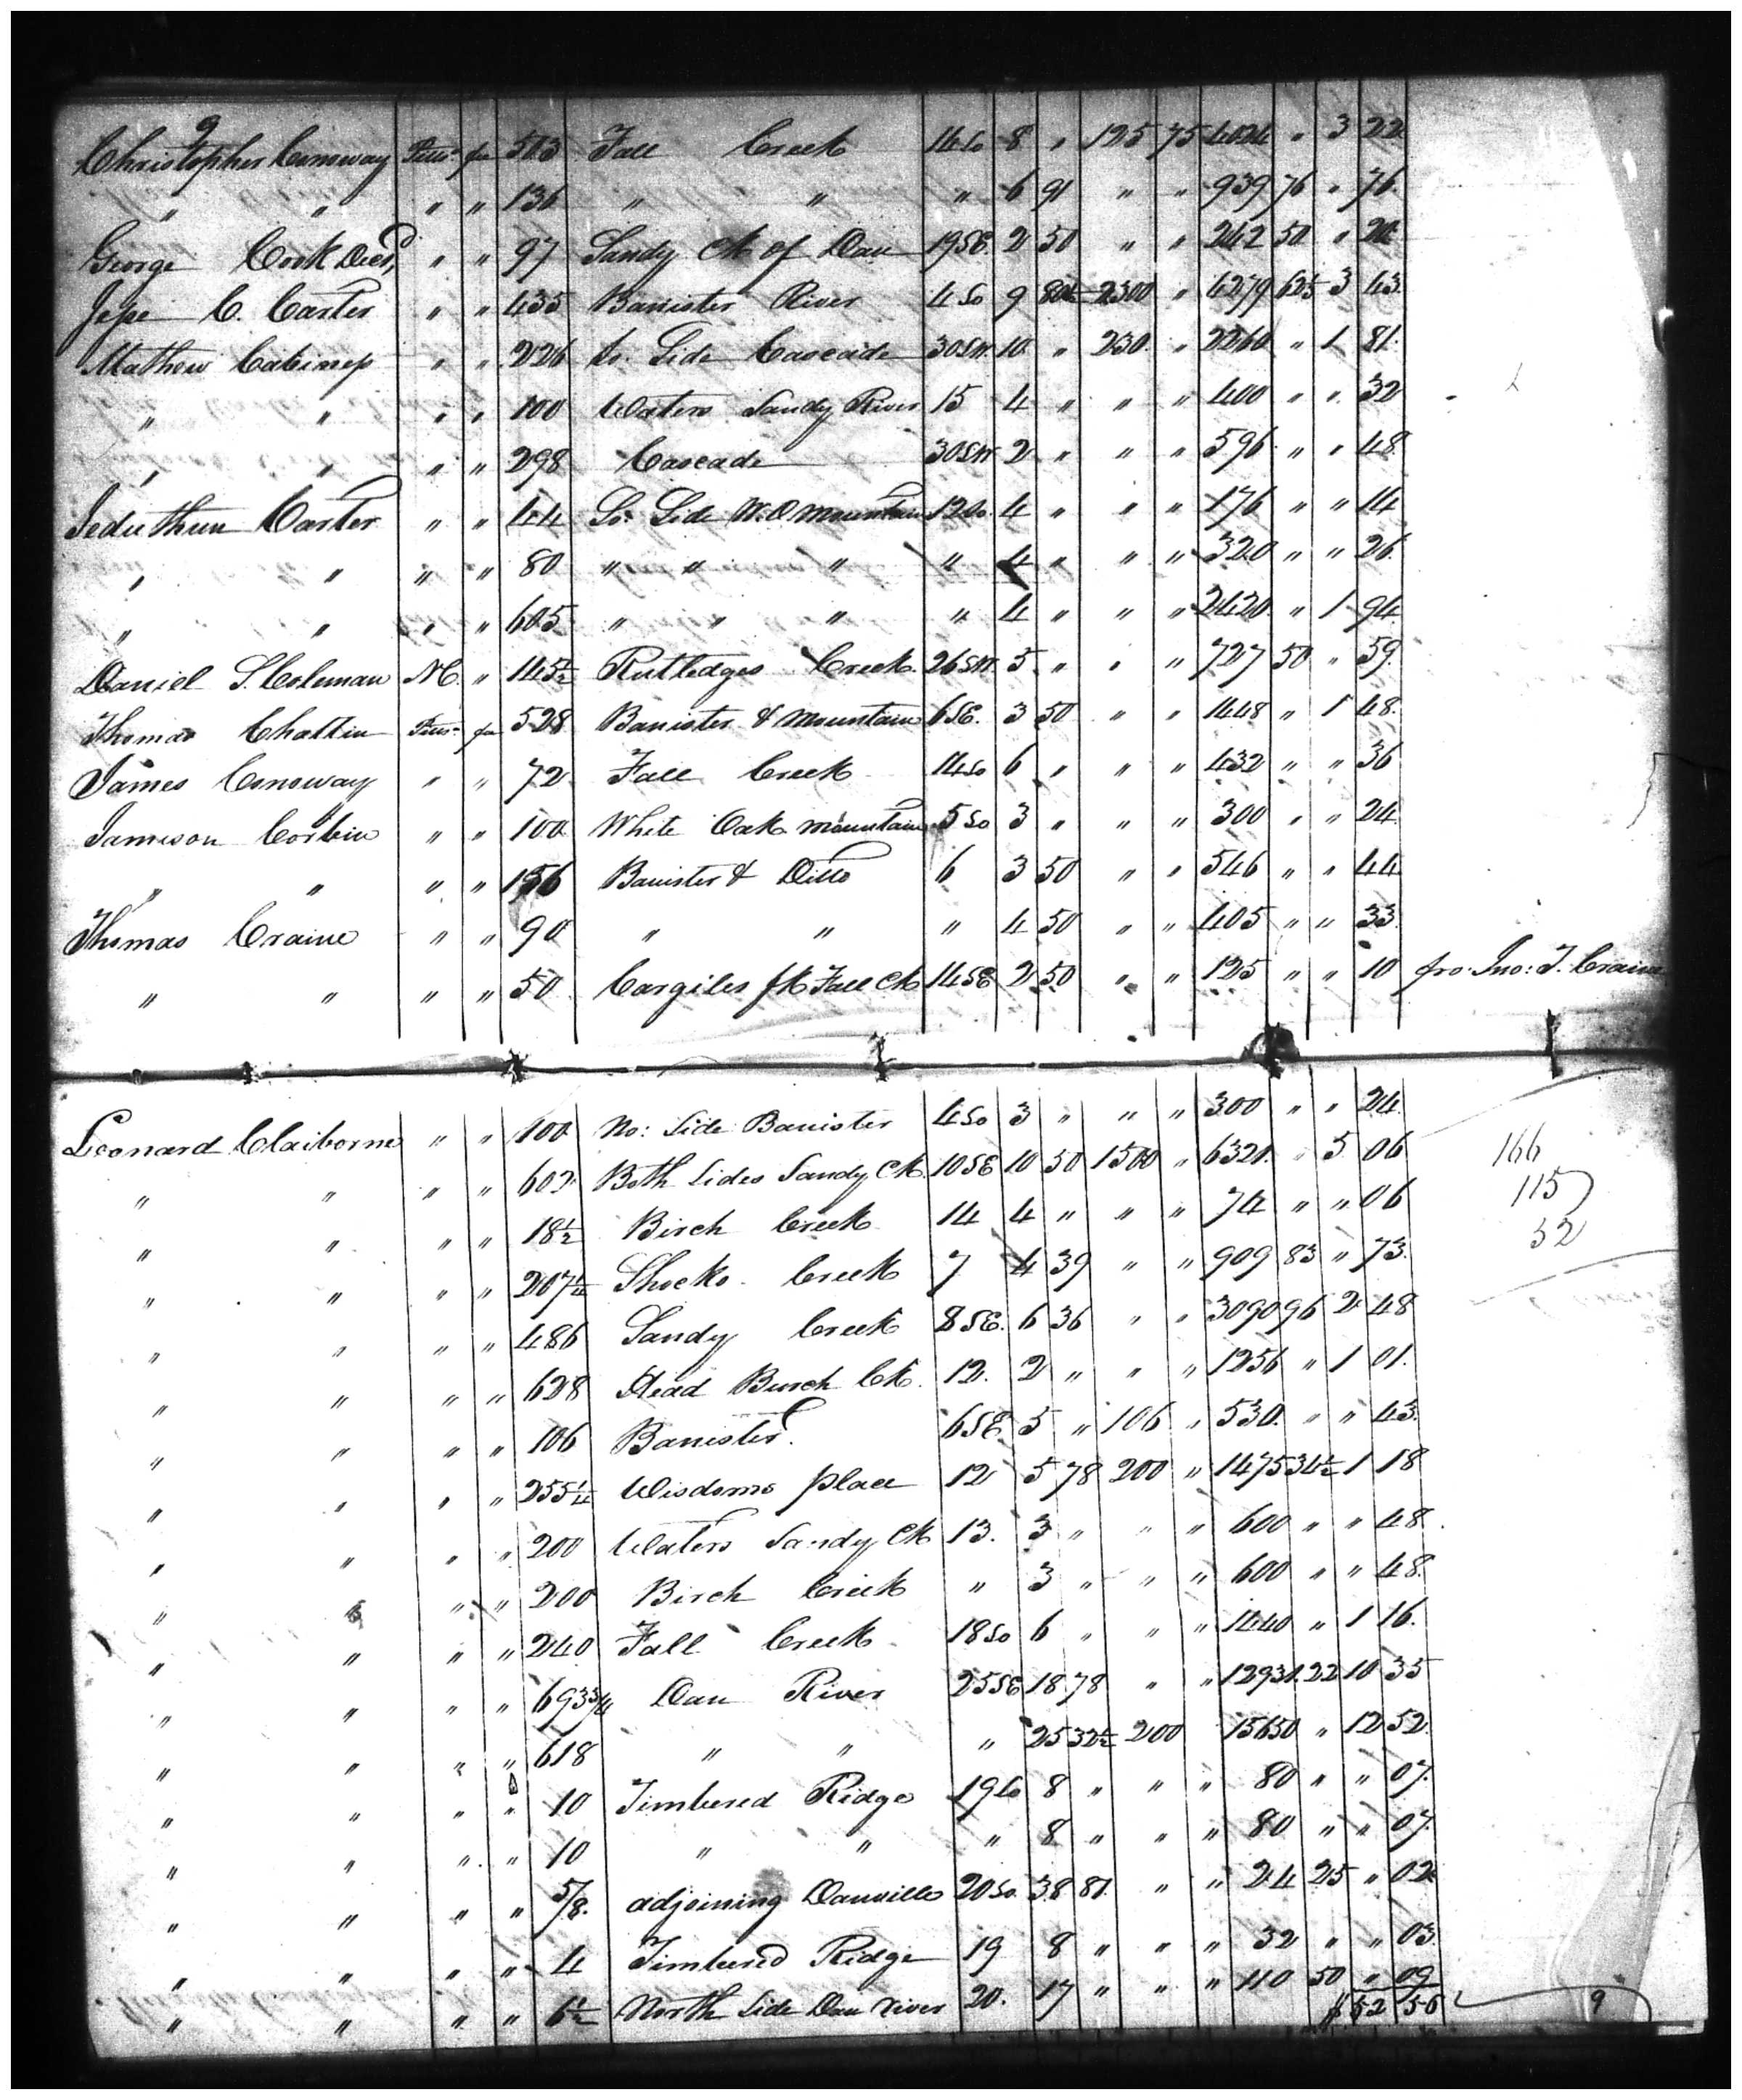 9
Christopher Conoway Pitts. fee 503 Fall Creek 14 So 8 " 125 75 4024 " 3 22
" " " " 136 " " " 6 91 " " 939 76 " 76
George Cook Decd, " " 97 Sandy Ck of Dan 19 SE. 2 50 " " 242 50 " 20
Jesse C. Carter " " 435 Banister River 4 So 9 80 2300 " 4279 62 3 43
Mathew Cabiness " " 226 So. Side Cascade 30 SW. 10 " 230 " 2260 " 1 81.
" " " " 100 Waters Sandy River 15 4 " " " 400 " " 32
" " " " 298 Cascade 30 SW. 2 " " " 596 " " 48
Jeduthun Carter " " 44 So. Side W. O mountain 12 So. 4 " " " 176 " " 14
" " " " 80 " " " " 4 " " " 320 " " 26
" " " " 605 " " " " 4 " " " 2420 " 1 94
Daniel S. Coleman NC. " 145½ Rutledges Creek 26 SW. 5 " " " 727 50 " 59.
Thomas Chattin Pitts. fee 528 Banister & mountain 6 SE. 3 50 " " 1848 " 1 48.
James Conoway " " 72 Fall Creek 14 So 6 " " " 432 " " 36
Jameson Corbin " " 100 White Oak mountain 5 So 3 " " " 300 " " 24
" " " " 156 Banister & Ditto 6 3 50 " " 546 " " 44
Thomas Craine " " 90 " " " 4 50 " " 405 " " 33
" " " " 50 Cargiles fk Fall Ck 14 SE 2 50 " " 125 " " 10 fro. Jno: T. Craine
Leonard Claiborne " " 100 No: Side Banister 4 So 3 " " " 300 " " 24
" " " " 602 Both Sides Sandy Ck. 10 SE 10 50 1500 " 6321. " 5 06 166
" " " " 18½ Birch Creek 14 4 " " " 74 " " 06 115
" " " " 207¼ Shocko Creek 7 4 39 " " 909 83 " 73. 32
" " " " 486 Sandy Creek 8 SE. 6 36 " " 3090 96 2 48
" " " " 628 Head Burch Ck. 12. 2 " " " 1256 " 1 01.
" " " " 106 Banister. 6 SE. 5 " 106 " 530. " " 43
" " " " 255¼ Wisdoms place 12 5 78 200 " 1475 34½ 1 18
" " " " 200 Waters Sandy Ck 13. 3 " " " 600 " " 48.
" " " " 200 Birch Creek " 3 " " " 600 " " 48.
" " " " 240 Fall Creek 18 So 6 " " " 1440 " 1 16.
" " " " 693¾ Dan River 25 SE 18 78 " " 12931. 22 10 35
" " " " 618 " " " 25 32½ 200 15650 " 12 52.
" " " " 10 Timbered Ridge 19 So 8 " " " 80 " " 07.
" " " " 10 " " " 8 " " " 80 " " 07.
" " " " 5/8. adjoining Danville 20 So. 38 81. " " 24 25 " 02
" " " " 4 Timbered Ridge 19 8 " " " 32 " " 03.
" " " " 6½ North Side Dan river 20. 17 " " " 110 50 " 09
$52 56 9